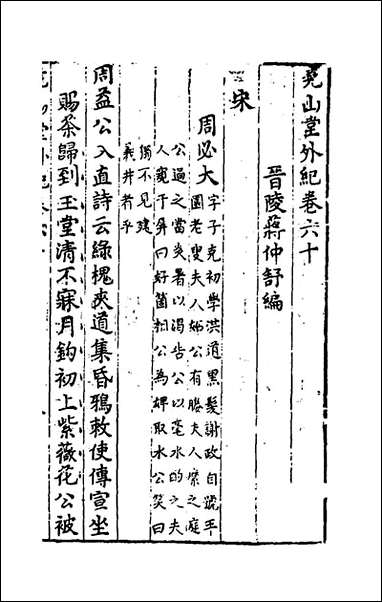 堯山堂外紀卷六十
晉陵蔣仲舒編
宋
周必大字子充初學洪道黑髮謝政自號平
園老叟夫人妬公有媵夫人縻之庭
公過之當炎暑以渴告公以毫水的之夫
人窺于屏曰好箇相公為婢取水公笑曰
獨不見建
義井者乎
周益公入直詩云綠槐夾道集昏鴉敕使傳宣坐
賜茶歸到玉堂清不寐月鈎初上紫薇花公被